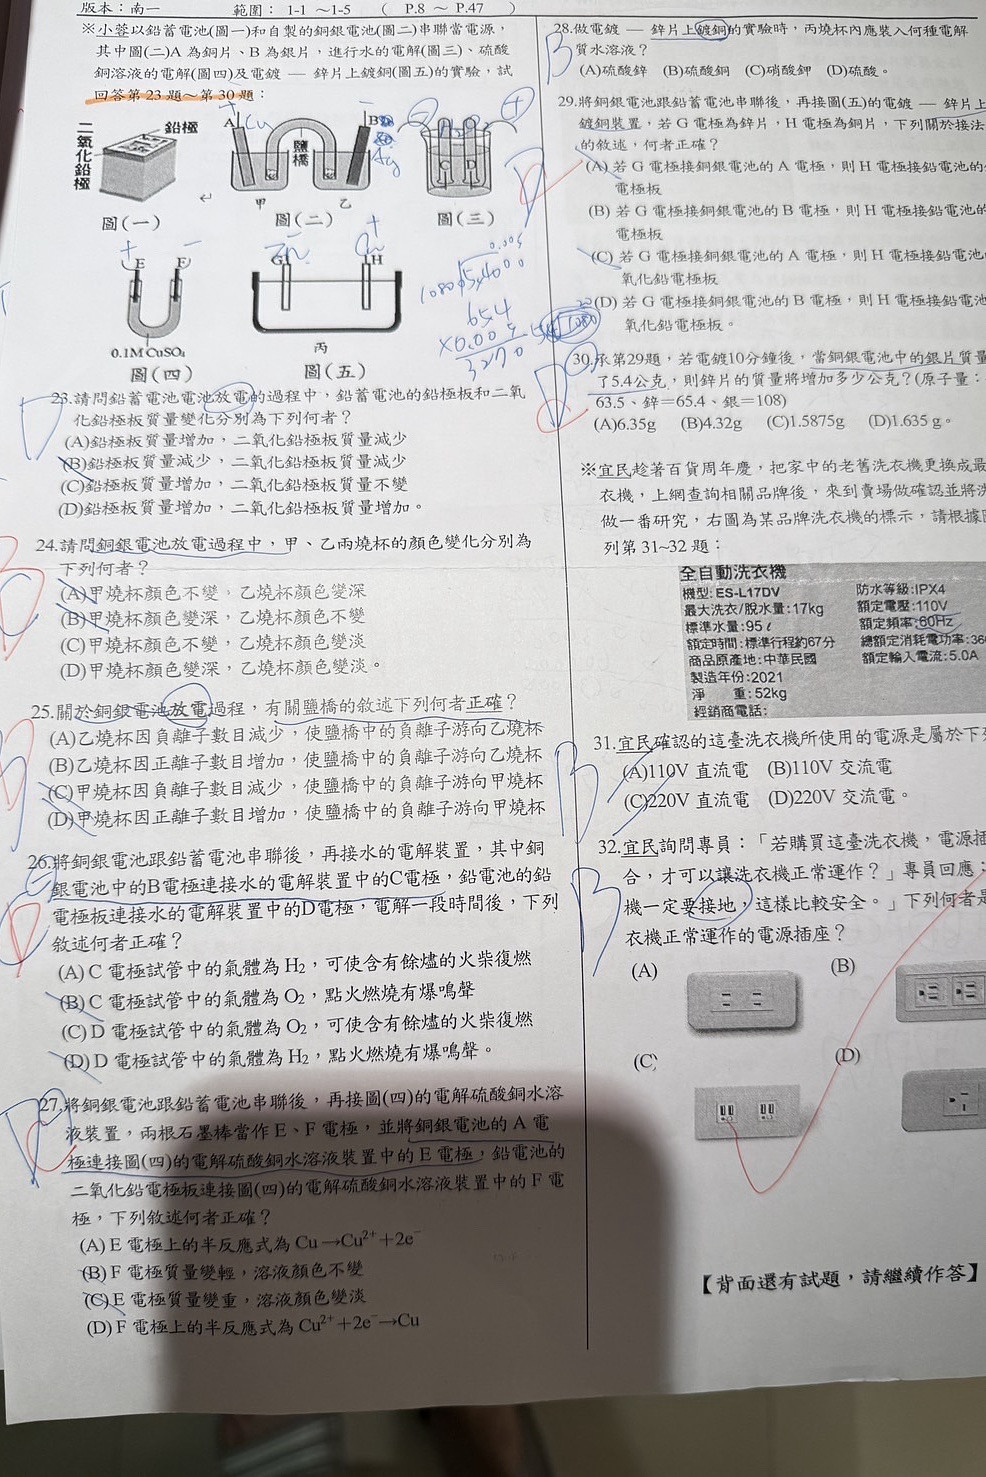 版本：南一 範圍： 1-1 ～1-5 （ P.8 ～ P.47 ）
※小蓉以鉛蓄電池(圖一)和自製的銅銀電池(圖二)串聯當電源，
其中圖(二)A 為銅片、B 為銀片，進行水的電解(圖三)、硫酸
銅溶液的電解(圖四)及電鍍 — 鋅片上鍍銅(圖五)的實驗，試
回答第 23 題～第 30 題：
二氧化鉛極
鉛極
圖(一)
+
A
Cu
鹽橋
－
B
Ag
甲
乙
圖(二)
－
+
C
D
圖(三)
+
E
－
F
0.1M CuSO₄
圖(四)
Zn
－
G
+
Cu
H
丙
圖(五)
23.請問鉛蓄電池電池放電的過程中，鉛蓄電池的鉛極板和二氧
化鉛極板質量變化分別為下列何者？
(A)鉛極板質量增加，二氧化鉛極板質量減少
(B)鉛極板質量減少，二氧化鉛極板質量減少
(C)鉛極板質量增加，二氧化鉛極板質量不變
(D)鉛極板質量增加，二氧化鉛極板質量增加。
D
24.請問銅銀電池放電過程中，甲、乙兩燒杯的顏色變化分別為
下列何者？
(A)甲燒杯顏色不變，乙燒杯顏色變深
(B)甲燒杯顏色變深，乙燒杯顏色不變
(C)甲燒杯顏色不變，乙燒杯顏色變淺
(D)甲燒杯顏色變深，乙燒杯顏色變淺。
25.關於銅銀電池放電過程，有關鹽橋的敘述下列何者正確？
(A)乙燒杯因負離子數目減少，使鹽橋中的負離子游向乙燒杯
(B)乙燒杯因正離子數目增加，使鹽橋中的負離子游向乙燒杯
(C)甲燒杯因負離子數目減少，使鹽橋中的負離子游向甲燒杯
(D)甲燒杯因正離子數目增加，使鹽橋中的負離子游向甲燒杯
26.將銅銀電池跟鉛蓄電池串聯後，再接水的電解裝置，其中銅
銀電池中的B電極連接水的電解裝置中的C電極，鉛電池的鉛
電極板連接水的電解裝置中的D電極，電解一段時間後，下列
敘述何者正確？
(A) C 電極試管中的氣體為 H₂，可使含有餘燼的火柴復燃
(B) C 電極試管中的氣體為 O₂，點火燃燒有爆鳴聲
(C) D 電極試管中的氣體為 O₂，可使含有餘燼的火柴復燃
(D) D 電極試管中的氣體為 H₂，點火燃燒有爆鳴聲。
27.將銅銀電池跟鉛蓄電池串聯後，再接圖(四)的電解硫酸銅水溶
液裝置，兩根石墨棒當作 E、F 電極，並將銅銀電池的 A 電
極連接圖(四)的電解硫酸銅水溶液裝置中的 E 電極，鉛電池的
二氧化鉛電極板連接圖(四)的電解硫酸銅水溶液裝置中的 F 電
極，下列敘述何者正確？
(A) E 電極上的半反應式為 Cu→Cu²⁺+2e⁻
(B) F 電極質量變輕，溶液顏色不變
(C) E 電極質量變重，溶液顏色變淡
(D) F 電極上的半反應式為 Cu²⁺+2e⁻→Cu
28.做電鍍 — 鋅片上鍍銅的實驗時，丙燒杯內應裝入何種電解
質水溶液？
(A)硫酸鋅 (B)硫酸銅 (C)硝酸鉀 (D)硫酸。
B
29.將銅銀電池跟鉛蓄電池串聯後，再接圖(五)的電鍍 — 鋅片上
鍍銅裝置，若 G 電極為鋅片，H 電極為銅片，下列關於接法
的敘述，何者正確？
(A) 若 G 電極接銅銀電池的 A 電極，則 H 電極接鉛電池的
電極板
(B) 若 G 電極接銅銀電池的 B 電極，則 H 電極接鉛電池的
電極板
(C) 若 G 電極接銅銀電池的 A 電極，則 H 電極接鉛電池
氧化鉛電極板
(D) 若 G 電極接銅銀電池的 B 電極，則 H 電極接鉛電池
氧化鉛電極板。
D
30.承第29題，若電鍍10分鐘後，當銅銀電池中的銀片質量
了5.4公克，則鋅片的質量將增加多少公克？(原子量：
63.5、鋅＝65.4、銀＝108)
(A)6.35g (B)4.32g (C)1.5875g (D)1.635 g。
0.005
654
×0.005
3270
※宜民趁著百貨周年慶，把家中的老舊洗衣機更換成最
衣機，上網查詢相關品牌後，來到賣場做確認並將洗
做一番研究，右圖為某品牌洗衣機的標示，請根據
列第 31~32 題：
全自動洗衣機
機型: ES-L17DV
最大洗衣/脫水量:17kg
標準水量:95ℓ
額定時間:標準行程約67分
商品原產地:中華民國
製造年份:2021
淨 重:52kg
經銷商電話:
防水等級:IPX4
額定電壓:110V
額定頻率:60Hz
總額定消耗電功率:36
額定輸入電流:5.0A
31.宜民確認的這臺洗衣機所使用的電源是屬於下
(A)110V 直流電 (B)110V 交流電
(C)220V 直流電 (D)220V 交流電。
B
32.宜民詢問專員：「若購買這臺洗衣機，電源插
合，才可以讓洗衣機正常運作？」專員回應：
機一定要接地，這樣比較安全。」下列何者是
衣機正常運作的電源插座？
B
(A)
(B)
(C)
(D)
【背面還有試題，請繼續作答】